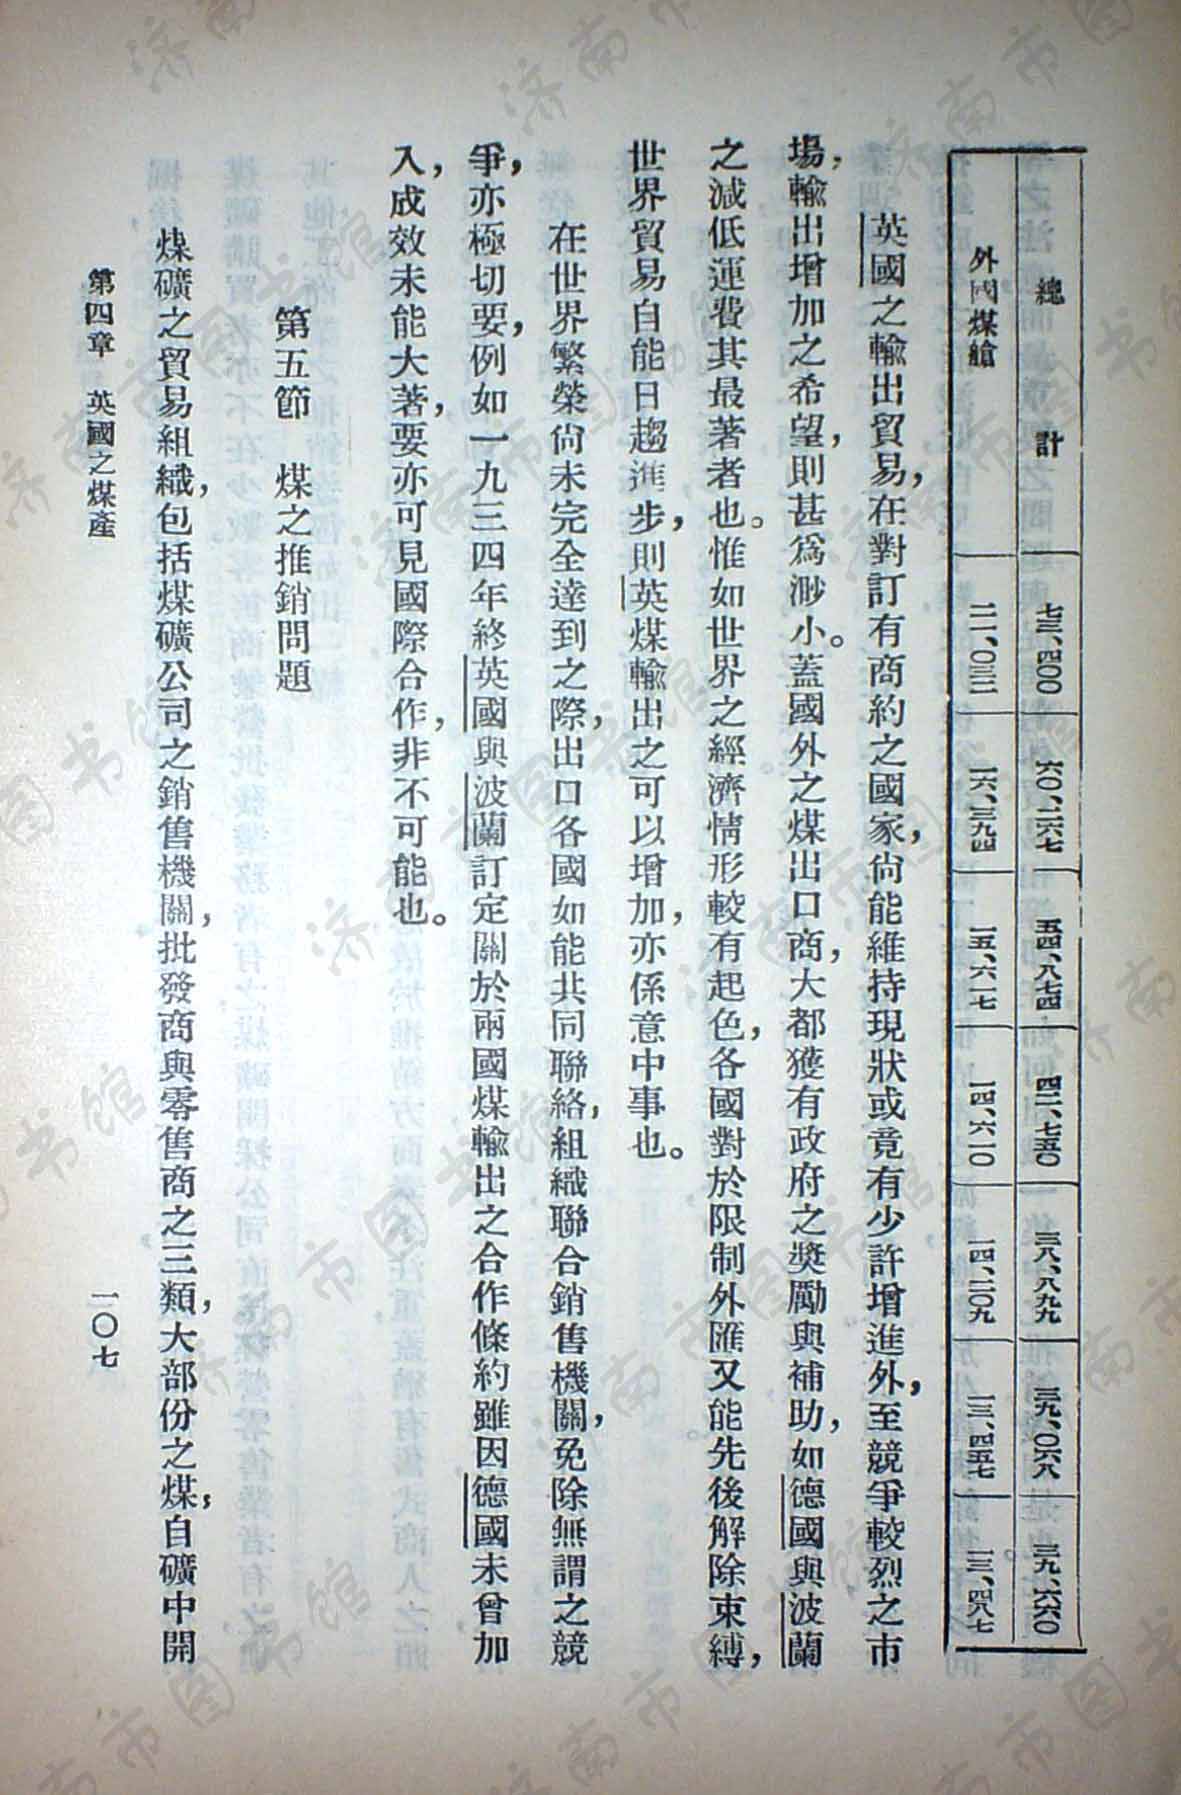 總計 七三、四〇〇 六〇、二六七 五四、八七四 四二、七五〇 三八、八九九 三九、〇六八 三九、六六〇
外國煤艙 二一、〇三二 一六、三九四 一五、六一七 一四、六一〇 一四、二〇九 一三、四五七 一三、四八七
英國之輸出貿易，在對訂有商約之國家，尙能維持現狀或竟有少許增進外，至競爭較烈之市
場，輸出增加之希望，則甚爲渺小。蓋國外之煤出口商，大都獲有政府之獎勵與補助，如德國與波蘭
之減低運費其最著者也。惟如世界之經濟情形較有起色，各國對於限制外匯又能先後解除束縛，
世界貿易自能日趨進步，則英煤輸出之可以增加，亦係意中事也。
在世界繁榮尙未完全達到之際，出口各國如能共同聯絡，組織聯合銷售機關，免除無謂之競
爭，亦極切要，例如一九三四年終英國與波蘭訂定關於兩國煤輸出之合作條約雖因德國未曾加
入，成效未能大著，要亦可見國際合作，非不可能也。
第五節 煤之推銷問題
煤礦之貿易組織，包括煤礦公司之銷售機關，批發商與零售商之三類，大部份之煤，自礦中開
第四章 英國之煤產 一〇七
济南市图书馆